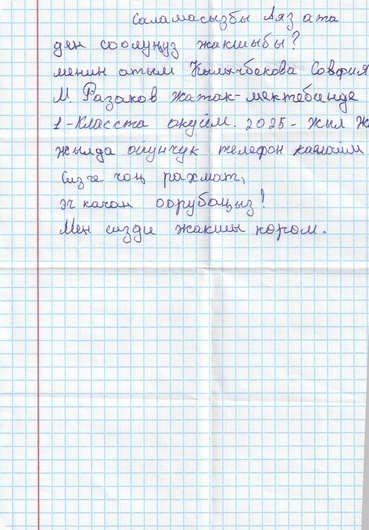 Саламасызбы Аяз ата
ден соолуңуз жакшыбы?
менин атым Кылычбекова Софрия
М. Разаков жатак-мектебинде
1-класста окуйм. 2025- жыл ж
жылда оюнчук телефон каалайм
Сизге чоң рахмат,
эч качан оорубаңыз!
Мен сизди жакшы көрөм.